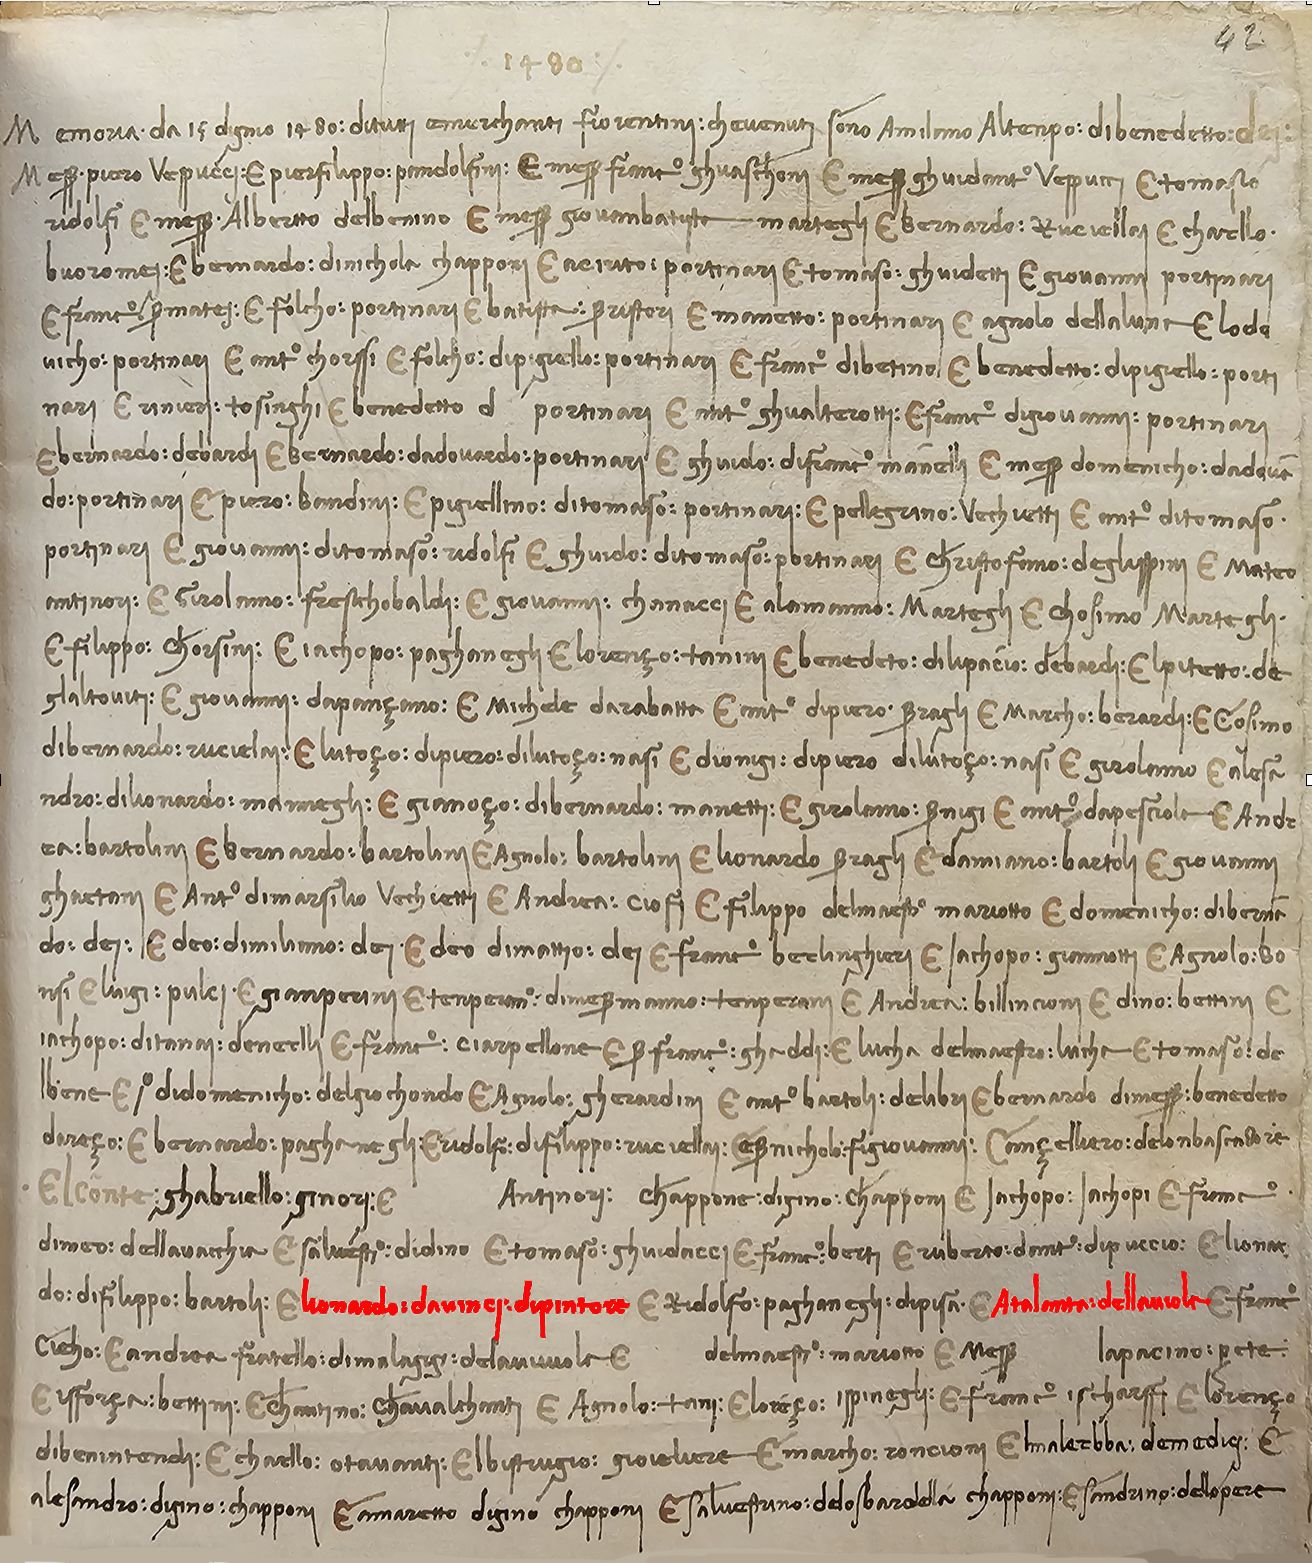 42
1480
Memoria da 15 dignio 1480: ditutti emerchanti fiorentini: chevenuti sono Amilano Altenpo: dibenedetto: dei:
Mess. piero Vespucci: E pierfilippo: pandolfini: E mess franc° ghuaschoni E mess ghuidant° Vespucci E tomaso
ridolfi E mess. Albertto delbenino E mess giovanbatista martegli E bernardo: Ruciellai E charllo.
buoromei: E bernardo: dinichola chapponi E acierito: portinari E tomaso: ghuidetti E giovanni portinari
E franc° s matej: E folcho: portinari E batista: pristori E manetto: portinari E agnolo dellaluna E lodo
vicho: portinari E ant° chorssi E folcho: dipigiello: portinari E franc° dibetino E benedetto: dipigiello: porti
nari E rinieri: tosinghi E benedetto d portinari E ant° ghualterotti: E franc° digiovanni: portinari
E bernardo: debardi E bernardo: dadovardo: portinari E ghuido: difranc° mānelli E mess domenicho: dadovar
do: portinari E piero: bandini: E pigiellino: ditomaso: portinari: E pellegrino: Vechietti E ant° ditomaso.
portinari E giovanni: ditomaso: ridolfi E ghuido: ditomaso: portinari E Christofano: deglispini E Mateo
antinori: E Girolamo: freschobaldi: E giovanni: chanacci E alamanno: Martegli E Chosimo Martegli.
E filippo: Chorsini: E iachopo: paghanegli E lorenço: tanini E benedeto: dilipacio: debardi: E lpitetto: de
glaltoviti: E giovanni: dapançano: E Michele darabatta E ant° dipiero. bragli E Marcho: berardi: E Cosimo
dibernardo: rucielai: E lutoço: dipiero: dilutoço: nasi E dionigi: dipiero dilutoço: nasi E girolamo E alesa
ndro: dilionardo: mannegli: E gianoço: dibernardo: manetti: E girolamo: bnigi E ant° dapesciola E Andr
ea: bartolini E bernardo: bartolini E Agnolo: bartolini E lionardo bragli E damiano: bartoli E giovanni
ghaetani E Ant° dimarsilio Vechietti E Andrea: Ciofi E filippo delmaest° mariotto E domenicho: dibernar
do: dei: E deo: dimiliano: dei E deo dimattio: dei E franc° berlinghieri E Jachopo: giannotti E Agnolo: bo
nsi E luigi: pulci E gianperini E tenperan°: dimess manno: tenperani E Andrea: billincioni E dino: bettini E
iachopo: ditanai: denerlli E franc°: Ciarpellone E s franc°: ghaddi: E lucha delmaestro: lucha E tomaso: de
lbene E didomenicho: delgiochondo E Agnolo: gherardini E ant° bartoli: delibri E bernardo dimess: benedetto
dareço: E bernardo: paghanegli: E ridolfo: difilippo: rucielai: E s nicholo: figiovanni: Cançelliero: delonbasciadore
E l Conte: ghabriello: ginori: E Antinori: Chappone: digino: Chapponi E Jachopo: Jachopi E franc°.
dimeo: dellavacchia E salvest°: didino E tomaso: ghuidacci E franc°: berti E ruberto: dant°: dipuccio: E lionar
do: difilippo: bartoli: E lionardo: davinci: dipintore E Ridolfo: paghanegli: dipisa. E Atalanta: dellaviola E franc°
Cieho: E andrea fratello: dimalagigi: delavivola E delmaest°: mariotto E Mess lapacino: pete:
E isforça: bettini: E Chantino: Chavalchanti E Agnolo: tani: E loreço: ispinegli: E franc° ischarffi E lorenço
dibenintendi: E charllo: otavanti: E lbistrugio: gioielvere E marcho: roncioni E lmalerbba: demedici: E
alesandro: digino: chapponi E amaretto digino chapponi E salvestrino: delosbardella chapponi: E sandrino: dellopere